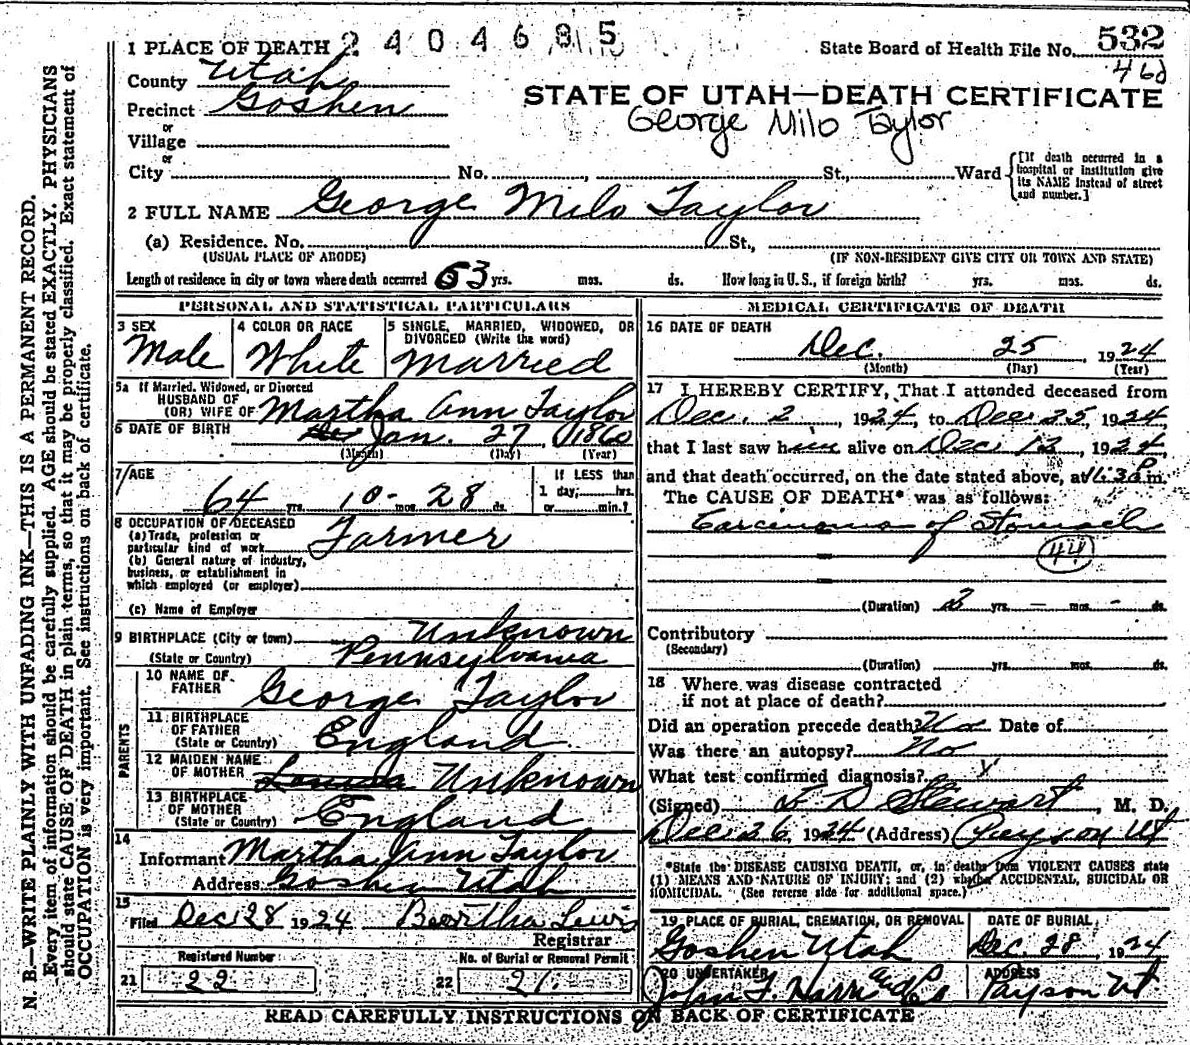 1 PLACE OF DEATH 2404685
State Board of Health File No. 532
46d
County Utah
Precinct Goshen
STATE OF UTAH—DEATH CERTIFICATE
George Milo Taylor
or
Village
or
City No. , St., Ward
[If death occurred in a hospital or institution give its NAME instead of street and number.]
2 FULL NAME George Milo Taylor
(a) Residence. No. St.,
(USUAL PLACE OF ABODE) (IF NON-RESIDENT GIVE CITY OR TOWN AND STATE)
Length of residence in city or town where death occurred 53 yrs. mos. ds. How long in U.S., if foreign birth? yrs. mos. ds.
PERSONAL AND STATISTICAL PARTICULARS
3 SEX Male
4 COLOR OR RACE White
5 SINGLE, MARRIED, WIDOWED, OR DIVORCED (Write the word) Married
5a If Married, Widowed, or Divorced
HUSBAND OF
(OR) WIFE OF Martha Ann Taylor
6 DATE OF BIRTH Jan. 27, 1860
(Month) (Day) (Year)
7 AGE
64 yrs. 10 mos. 28 ds.
If LESS than
1 day, hrs.
or min.?
8 OCCUPATION OF DECEASED
(a) Trade, profession or
particular kind of work Farmer
(b) General nature of industry,
business, or establishment in
which employed (or employer)
(c) Name of Employer
9 BIRTHPLACE (City or town) Unknown
(State or Country) Pennsylvania
PARENTS
10 NAME OF FATHER George Taylor
11 BIRTHPLACE OF FATHER
(State or Country) England
12 MAIDEN NAME OF MOTHER Louisa Unknown
13 BIRTHPLACE OF MOTHER
(State or Country) England
14
Informant Martha Ann Taylor
Address Goshen Utah
15
Filed Dec 28 1924 Lewis
Registrar
Registered Number
21 22
No. of Burial or Removal Permit
22 21.
MEDICAL CERTIFICATE OF DEATH
16 DATE OF DEATH
Dec. 25, 1924
(Month) (Day) (Year)
17 I HEREBY CERTIFY, That I attended deceased from
Dec. 2 1924, to Dec. 25, 1924
that I last saw him alive on Dec. 1924,
and that death occurred, on the date stated above, at 11:30 P m.
The CAUSE OF DEATH* was as follows:
Carcinoma of Stomach
44
(Duration) 2 yrs. – mos. – ds.
Contributory
(Secondary)
(Duration) yrs. mos. ds.
18 Where was disease contracted
if not at place of death?
Did an operation precede death? No Date of
Was there an autopsy? No
What test confirmed diagnosis?
(Signed) L D Stewart, M. D.
Dec 26, 1924 (Address) Payson Ut
*State the DISEASE CAUSING DEATH, or, in deaths from VIOLENT CAUSES state
(1) MEANS AND NATURE OF INJURY; and (2) whether ACCIDENTAL, SUICIDAL OR
HOMICIDAL. (See reverse side for additional space.)
19 PLACE OF BURIAL, CREMATION, OR REMOVAL
Goshen Utah
DATE OF BURIAL
Dec. 28, 1924
20 UNDERTAKER
John T. and Co
ADDRESS
Payson Ut
READ CAREFULLY INSTRUCTIONS ON BACK OF CERTIFICATE
N. B.—WRITE PLAINLY WITH UNFADING INK—THIS IS A PERMANENT RECORD.
Every item of information should be carefully supplied. AGE should be stated EXACTLY. PHYSICIANS
should state CAUSE OF DEATH in plain terms, so that it may be properly classified. Exact statement of
OCCUPATION is very important. See instructions on back of certificate.